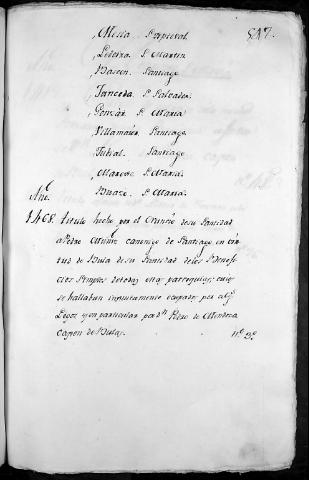 847.
Mella S. Pasqual.
Ledeira S. Martin
Barcon. Santiago
Janceda. S. Salvador.
Gonzar S. Maria
Villamaior Santiago
Jubial. Santiago
Maroxo S. Maria.
Burazo S. Maria.
Año.
1468. titulo hecho por el Nuncio de su Santidad
a Pedro Muñiz canonigo de Santiago en vir
tud de Bula de su Santidad delos Benefi
cios simples de todas estas parroquias; cuios
se hallaban injustamente ocupados por alg.s
Legos y en particular por d.n Pedro de Mendoza
cajon de Bulas. n.o 3.o